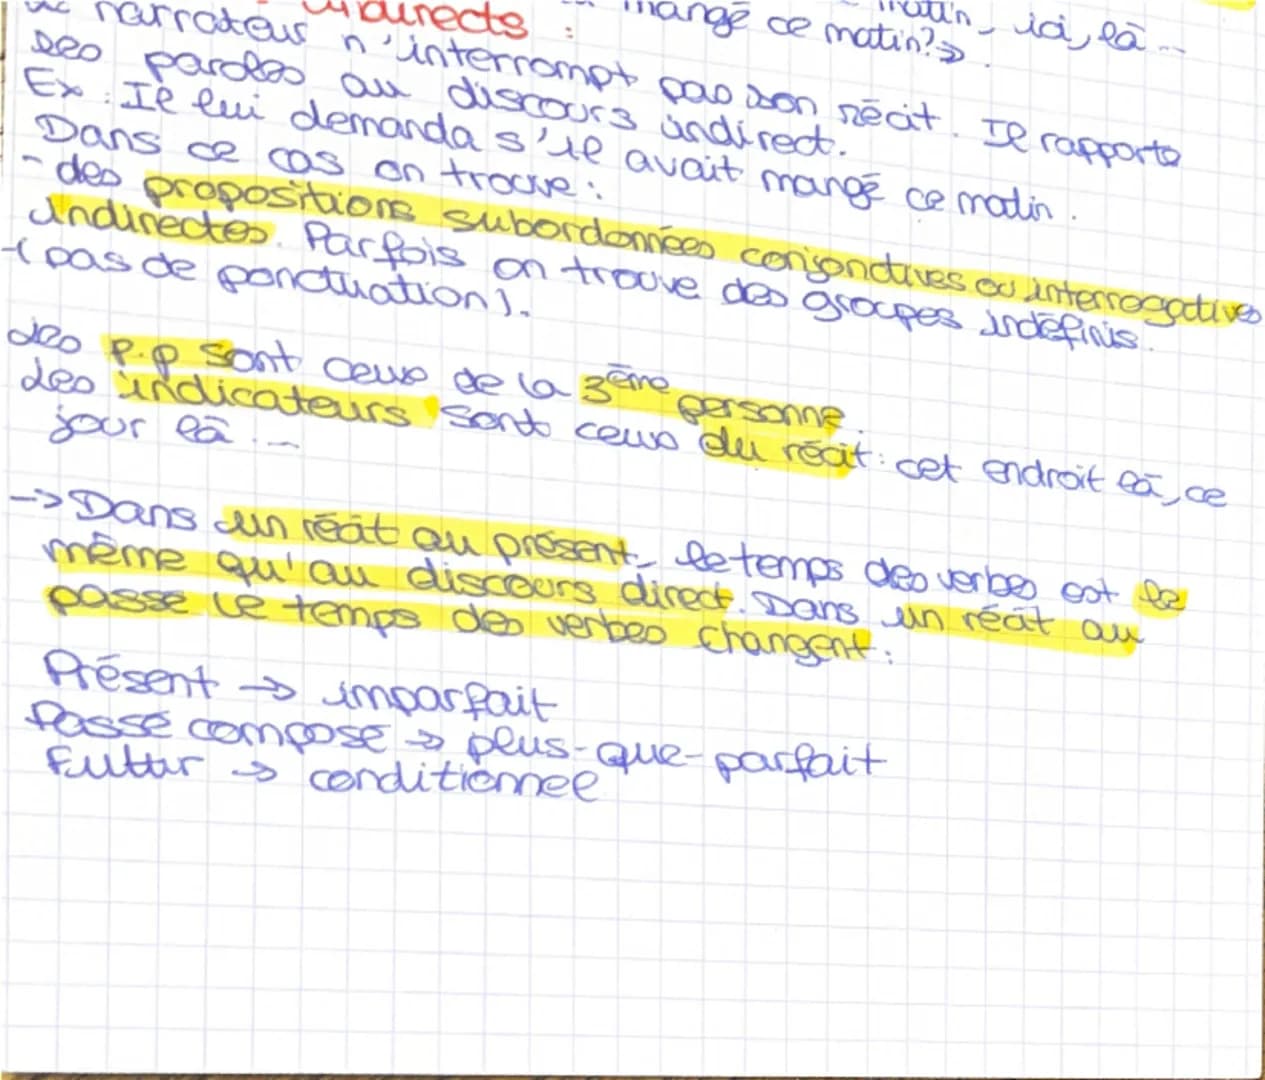 mangé ce matin?»
matin, ici, là...
indirects :
narrateur n'interrompt pas son récit. Il rapporte
des paroles au discours indirect.
Ex : Il lui demanda s'il avait mangé ce matin.
Dans ce cas on trouve :
- des propositions subordonnées conjonctives ou interrogatives
indirectes. Parfois on trouve des groupes indéfinis.
- (pas de ponctuation).
des p.p sont ceux de la 3ème personne.
des indicateurs sont ceux du récit : cet endroit là, ce
jour là ...
-> Dans un récit au présent, le temps des verbes est le
même qu'au discours direct. Dans un récit au
passé le temps des verbes changent :
Présent -> imparfait
Passé composé -> plus-que-parfait
Futtur -> conditionnel